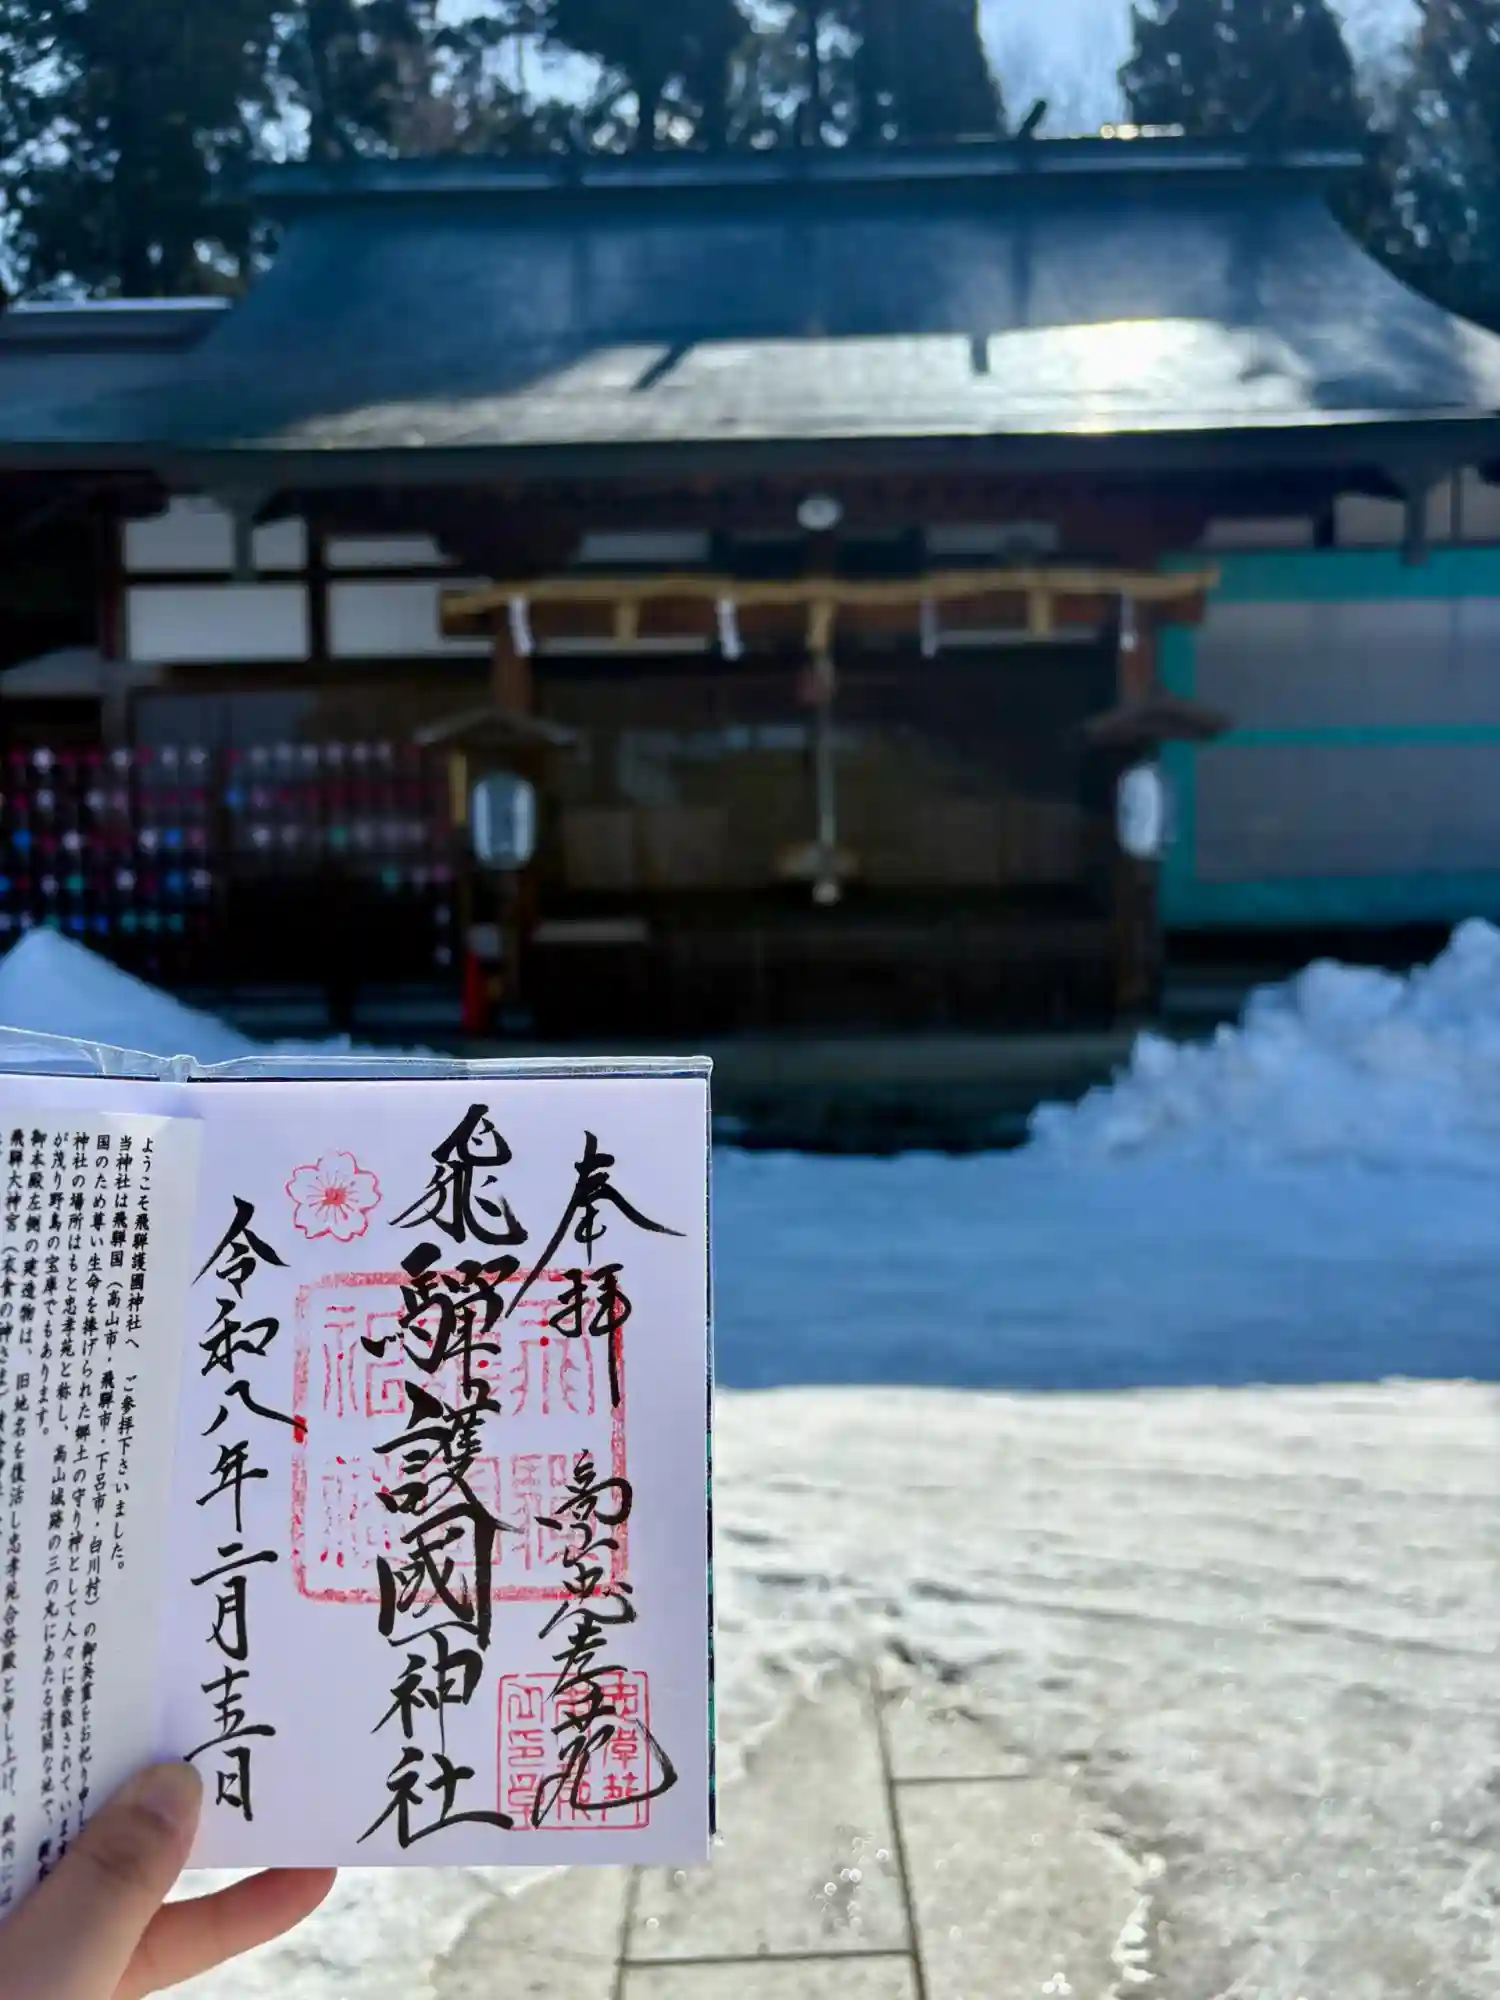 奉拝
高山忠孝苑
飛騨護國神社
令和八年二月十五日
ようこそ飛騨護國神社へ　ご参拝下さいました。
当神社は飛騨国（高山市・飛騨市・下呂市・白川村）の御英霊をお祀り申し
国のため尊い生命を捧げられた郷土の守り神として人々に崇敬されています
神社の場所はもと忠孝苑と称し、高山城跡の三の丸にあたる清閑な地で、
が茂り野鳥の宝庫でもあります。
御本殿左側の建造物は、旧地名を復活し忠孝苑合祭殿と申し上げ、殿内には
飛騨大神宮（衣食の神さま）